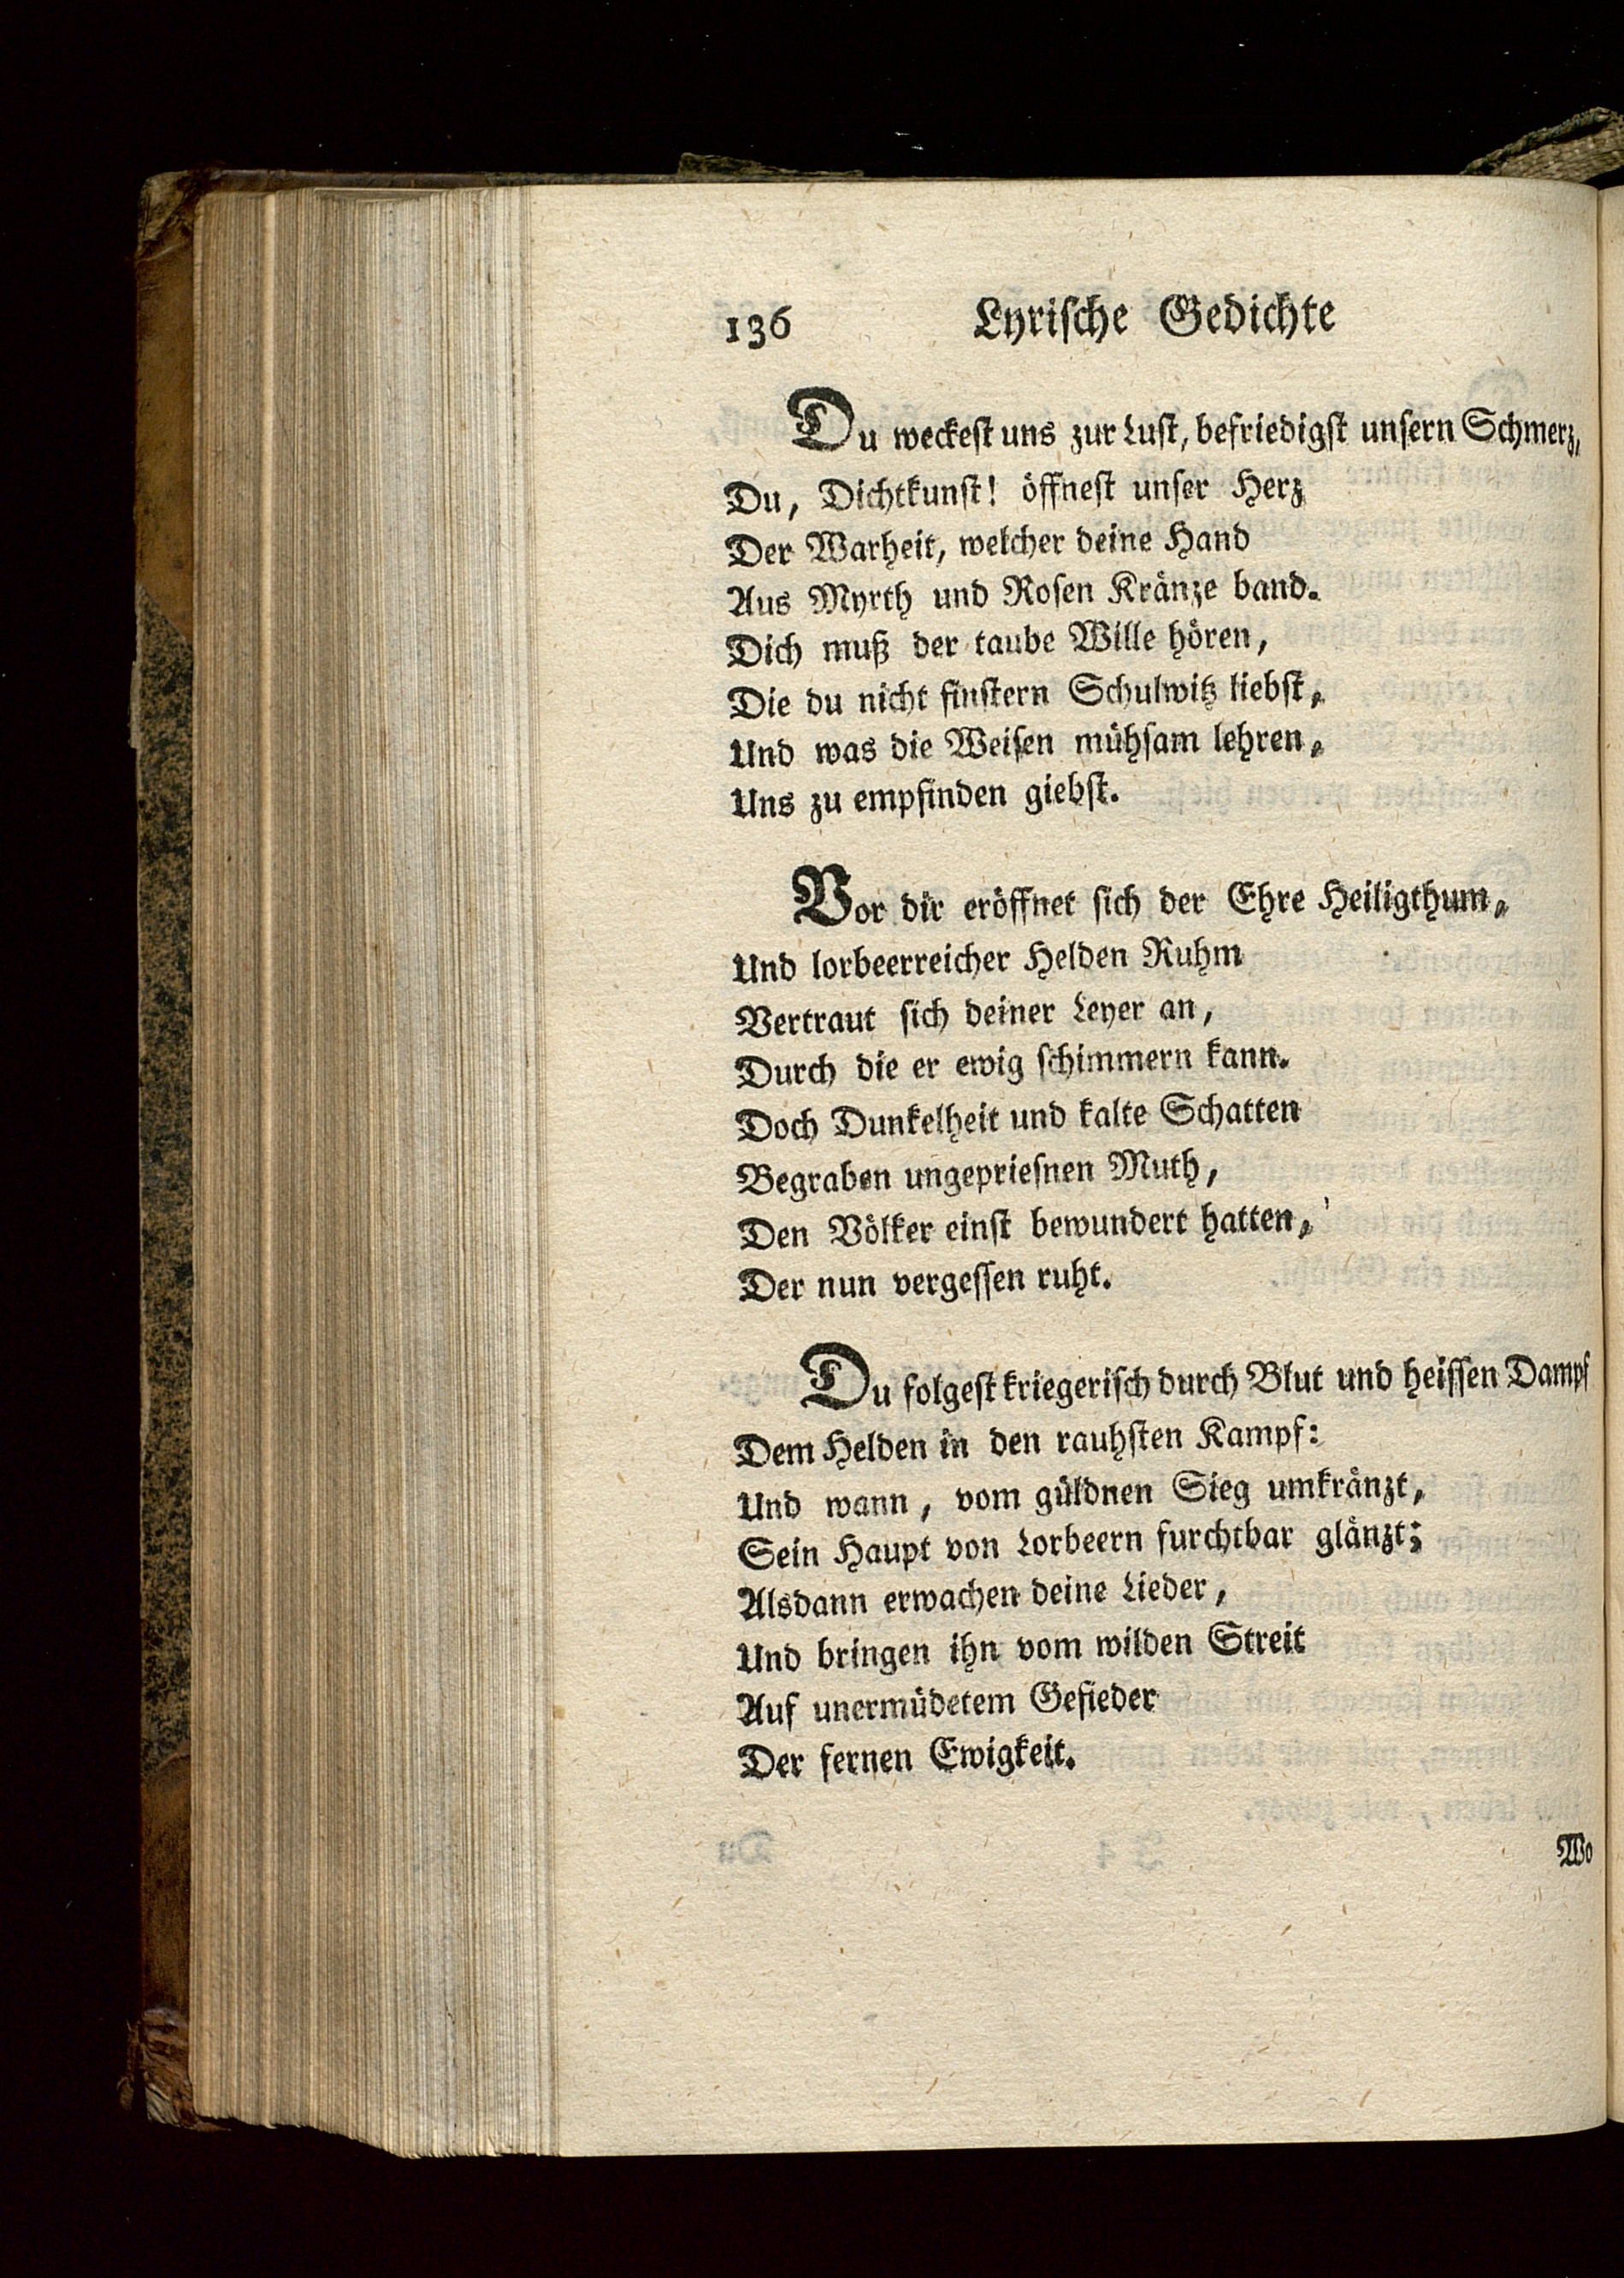 136 Lyriſche Gedichte
Du weckeſt uns zur Luſt, befriedigſt unſern Schmerz,
Du, Dichtkunſt! öffneſt unſer Herz
Der Warheit, welcher deine Hand
Aus Myrth und Roſen Kränze band.
Dich muß der taube Wille hören,
Die du nicht finſtern Schulwitz liebſt,
Und was die Weiſen mühſam lehren,
Uns zu empfinden giebſt.
Vor dir eröffnet ſich der Ehre Heiligthum,
Und lorbeerreicher Helden Ruhm
Vertraut ſich deiner Leyer an,
Durch die er ewig ſchimmern kann.
Doch Dunkelheit und kalte Schatten
Begraben ungeprieſnen Muth,
Den Völker einſt bewundert hatten,
Der nun vergeſſen ruht.
Du folgeſt kriegeriſch durch Blut und heiſſen Dampf
Dem Helden in den rauhſten Kampf:
Und wann, vom güldnen Sieg umkränzt,
Sein Haupt von Lorbeern furchtbar glänzt;
Alsdann erwachen deine Lieder,
Und bringen ihn vom wilden Streit
Auf unermüdetem Gefieder
Der fernen Ewigkeit.
Wo